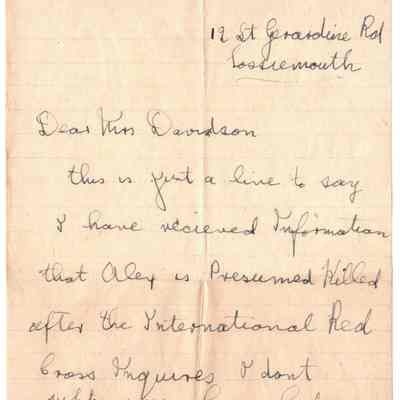 12 St Gerardine Rd
Lossiemouth
Dear Mrs Davidson
this is just a line to say
I have recieved Information
that Alex is Presumed Killed
after the International Red
Cross Inquires I dont